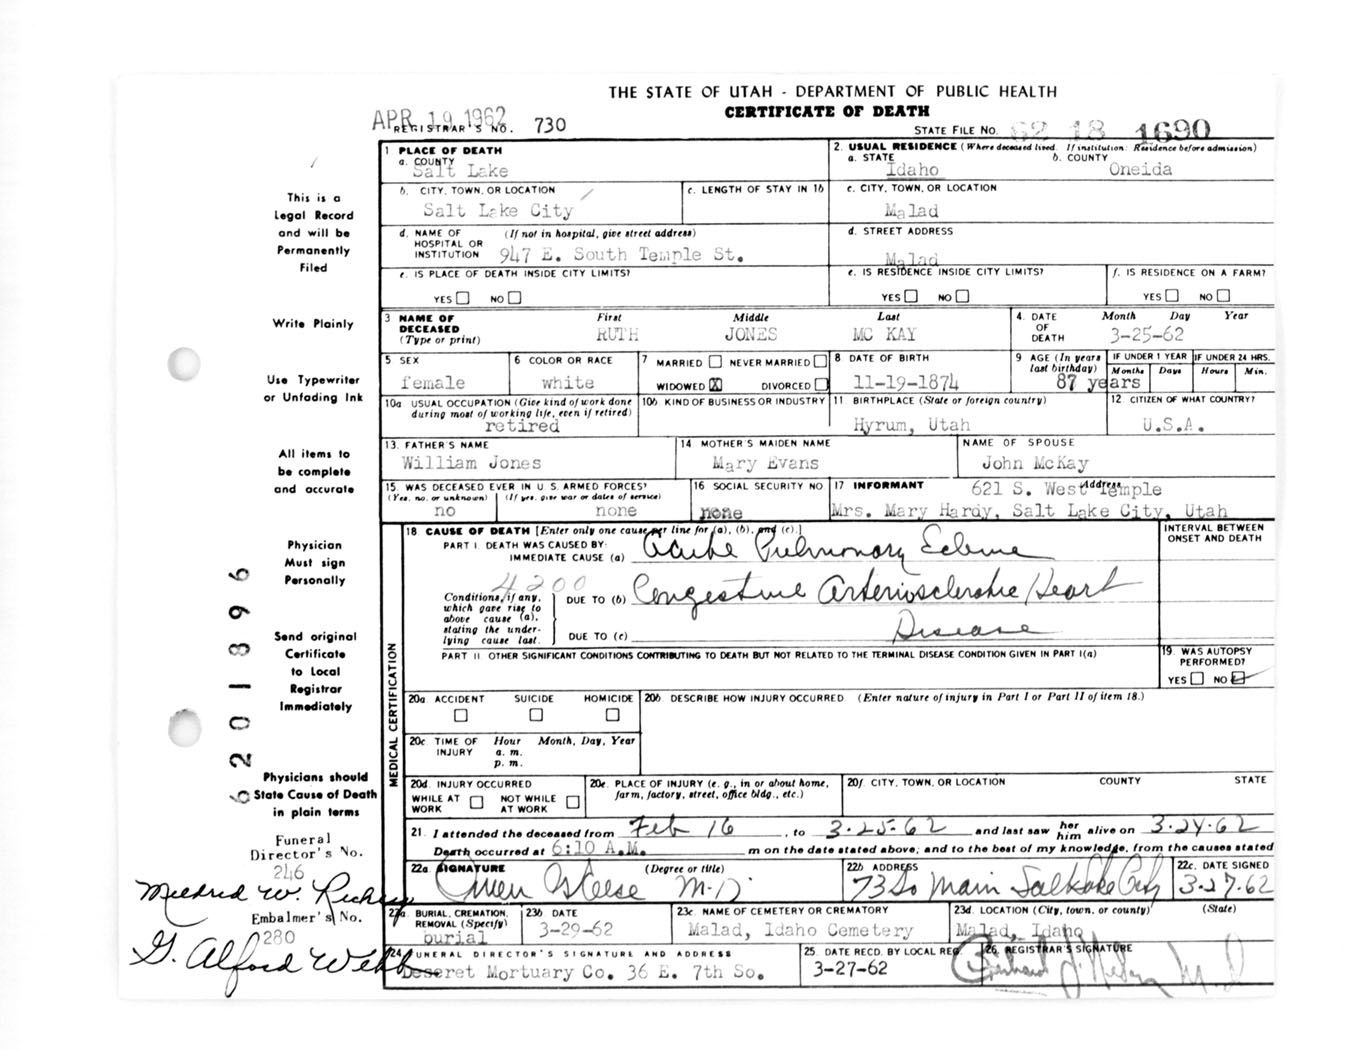 THE STATE OF UTAH - DEPARTMENT OF PUBLIC HEALTH
CERTIFICATE OF DEATH
APR 19 1962
REGISTRAR'S NO. 730
STATE FILE NO. 62 18 1690
This is a
Legal Record
and will be
Permanently
Filed
Write Plainly
Use Typewriter
or Unfading Ink
All items to
be complete
and accurate
Physician
Must sign
Personally
Send original
Certificate
to Local
Registrar
Immediately
Physicians should
State Cause of Death
in plain terms
Funeral
Director's No.
246
Mildred W.
Embalmer's No.
280
G. Alford Webb
6201896
1 PLACE OF DEATH
a. COUNTY
Salt Lake
2. USUAL RESIDENCE (Where deceased lived. If institution: Residence before admission)
a. STATE b. COUNTY
Idaho Oneida
b. CITY, TOWN, OR LOCATION
Salt Lake City
c. LENGTH OF STAY IN 1b
c. CITY, TOWN, OR LOCATION
Malad
d. NAME OF HOSPITAL OR INSTITUTION (If not in hospital, give street address)
947 E. South Temple St.
d. STREET ADDRESS
Malad
e. IS PLACE OF DEATH INSIDE CITY LIMITS?
YES NO
e. IS RESIDENCE INSIDE CITY LIMITS?
YES NO
f. IS RESIDENCE ON A FARM?
YES NO
3 NAME OF DECEASED (Type or print)
First Middle Last
RUTH JONES MC KAY
4. DATE OF DEATH
Month Day Year
3-25-62
5 SEX
female
6 COLOR OR RACE
white
7 MARRIED NEVER MARRIED
WIDOWED X DIVORCED
8 DATE OF BIRTH
11-19-1874
9 AGE (In years last birthday)
87 years
IF UNDER 1 YEAR IF UNDER 24 HRS.
Months Days Hours Min.
10a USUAL OCCUPATION (Give kind of work done during most of working life, even if retired)
retired
10b KIND OF BUSINESS OR INDUSTRY
11 BIRTHPLACE (State or foreign country)
Hyrum, Utah
12 CITIZEN OF WHAT COUNTRY?
U.S.A.
13. FATHER'S NAME
William Jones
14 MOTHER'S MAIDEN NAME
Mary Evans
NAME OF SPOUSE
John McKay
15. WAS DECEASED EVER IN U.S. ARMED FORCES?
(Yes, no, or unknown) (If yes, give war or dates of service)
no none
16 SOCIAL SECURITY NO
none
17 INFORMANT Address
621 S. West Temple
Mrs. Mary Hardy, Salt Lake City, Utah
MEDICAL CERTIFICATION
18 CAUSE OF DEATH [Enter only one cause per line for (a), (b), and (c).]
INTERVAL BETWEEN ONSET AND DEATH
PART I. DEATH WAS CAUSED BY:
IMMEDIATE CAUSE (a) Acute Pulmonary Edema
4200
Conditions, if any, which gave rise to above cause (a), stating the underlying cause last.
DUE TO (b) Congestive Arteriosclerotic Heart
DUE TO (c) Disease
PART II. OTHER SIGNIFICANT CONDITIONS CONTRIBUTING TO DEATH BUT NOT RELATED TO THE TERMINAL DISEASE CONDITION GIVEN IN PART I(a)
19. WAS AUTOPSY PERFORMED?
YES NO
20a ACCIDENT SUICIDE HOMICIDE
20b DESCRIBE HOW INJURY OCCURRED. (Enter nature of injury in Part I or Part II of item 18.)
20c TIME OF INJURY
Hour Month, Day, Year
a. m.
p. m.
20d. INJURY OCCURRED
WHILE AT WORK NOT WHILE AT WORK
20e. PLACE OF INJURY (e. g., in or about home, farm, factory, street, office bldg., etc.)
20f. CITY, TOWN, OR LOCATION COUNTY STATE
21. I attended the deceased from Feb 16, to 3-25-62 and last saw her him alive on 3-24-62
Death occurred at 6:10 A.M. m on the date stated above; and to the best of my knowledge, from the causes stated
22a SIGNATURE (Degree or title)
Owen G Reese M.D.
22b ADDRESS
73 So Main Salt Lake City
22c. DATE SIGNED
3-27-62
23a BURIAL, CREMATION, REMOVAL (Specify)
burial
23b DATE
3-29-62
23c NAME OF CEMETERY OR CREMATORY
Malad, Idaho Cemetery
23d. LOCATION (City, town, or county) (State)
Malad, Idaho
24 FUNERAL DIRECTOR'S SIGNATURE AND ADDRESS
Deseret Mortuary Co. 36 E. 7th So.
25. DATE RECD. BY LOCAL REG.
3-27-62
26. REGISTRAR'S SIGNATURE